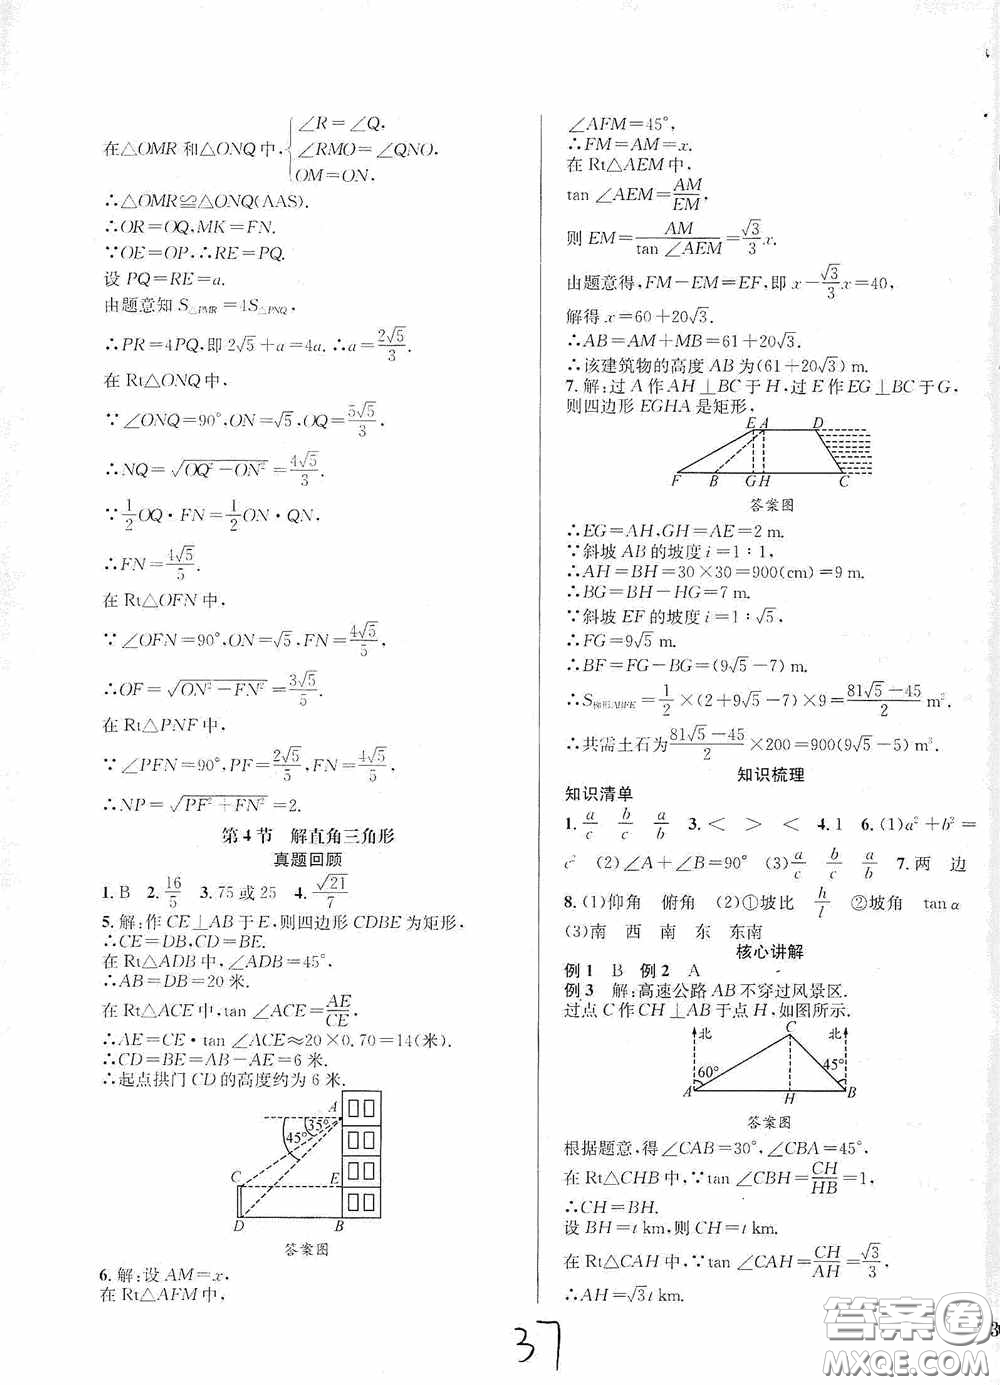 在△OMR 和△ONQ 中,{∠R=∠Q, ∠RMO=∠QNO, OM=ON,
∴△OMR≌△ONQ(AAS).
∴OR=OQ,MK=FN.
∵OE=OP,∴RE=PQ.
设 PQ=RE=a.
由题意知 S△PMR=4S△PNQ,
∴PR=4PQ,即 2√5+a=4a.∴a=2√5/3.
在 Rt△ONQ 中,
∵∠ONQ=90°,ON=√5,OQ=5√5/3,
∴NQ=√(OQ²-ON²)=4√5/3.
∵1/2 OQ·FN=1/2 ON·QN.
∴FN=4√5/5.
在 Rt△OFN 中,
∵∠OFN=90°,ON=√5,FN=4√5/5,
∴OF=√(ON²-FN²)=3√5/5.
在 Rt△PNF 中,
∵∠PFN=90°,PF=2√5/5,FN=4√5/5,
∴NP=√(PF²+FN²)=2.
第 4 节 解直角三角形
真题回顾
1. B 2. 16/5 3. 75 或 25 4. √21/7
5. 解:作 CE⊥AB 于 E,则四边形 CDBE 为矩形,
∴CE=DB,CD=BE.
在 Rt△ADB 中,∠ADB=45°,
∴AB=DB=20 米.
在 Rt△ACE 中,tan∠ACE=AE/CE,
∴AE=CE·tan∠ACE≈20×0.70=14(米).
∴CD=BE=AB-AE=6 米.
∴起点拱门 CD 的高度约为 6 米.
A
35°
45°
C E
D B
答案图
6. 解:设 AM=x,
在 Rt△AFM 中,
∠AFM=45°,
∴FM=AM=x.
在 Rt△AEM 中,
tan∠AEM=AM/EM,
则 EM=AM/tan∠AEM=√3/3 x.
由题意得,FM-EM=EF,即 x-√3/3 x=40,
解得 x=60+20√3.
∴AB=AM+MB=61+20√3.
∴该建筑物的高度 AB 为(61+20√3) m.
7. 解:过 A 作 AH⊥BC 于 H,过 E 作 EG⊥BC 于 G,
则四边形 EGHA 是矩形,
E A D
F B G H C
答案图
∴EG=AH,GH=AE=2 m.
∵斜坡 AB 的坡度 i=1:1,
∴AH=BH=30×30=900(cm)=9 m.
∴BG=BH-HG=7 m.
∵斜坡 EF 的坡度 i=1:√5,
∴FG=9√5 m.
∴BF=FG-BG=(9√5-7) m.
∴S梯形ABFE=1/2×(2+9√5-7)×9=(81√5-45)/2 m².
∴共需土石为(81√5-45)/2×200=900(9√5-5) m³.
知识梳理
知识清单
1. a/c b/c a/b 3. < > < 4. 1 6. (1)a²+b²=
c² (2)∠A+∠B=90° (3)a/c b/c a/b 7. 两 边
8. (1)仰角 俯角 (2)①坡比 h/l ②坡角 tan α
(3)南 西 南 东 东南
核心讲解
例 1 B 例 2 A
例 3 解:高速公路 AB 不穿过风景区.
过点 C 作 CH⊥AB 于点 H,如图所示.
北 C 北
60° 45°
A H B
答案图
根据题意,得∠CAB=30°,∠CBA=45°,
在 Rt△CHB 中,∵tan∠CBH=CH/HB=1,
∴CH=BH.
设 BH=t km,则 CH=t km.
在 Rt△CAH 中,∵tan∠CAH=CH/AH=√3/3,
∴AH=√3t km.
37
答案圈
MXQE.COM